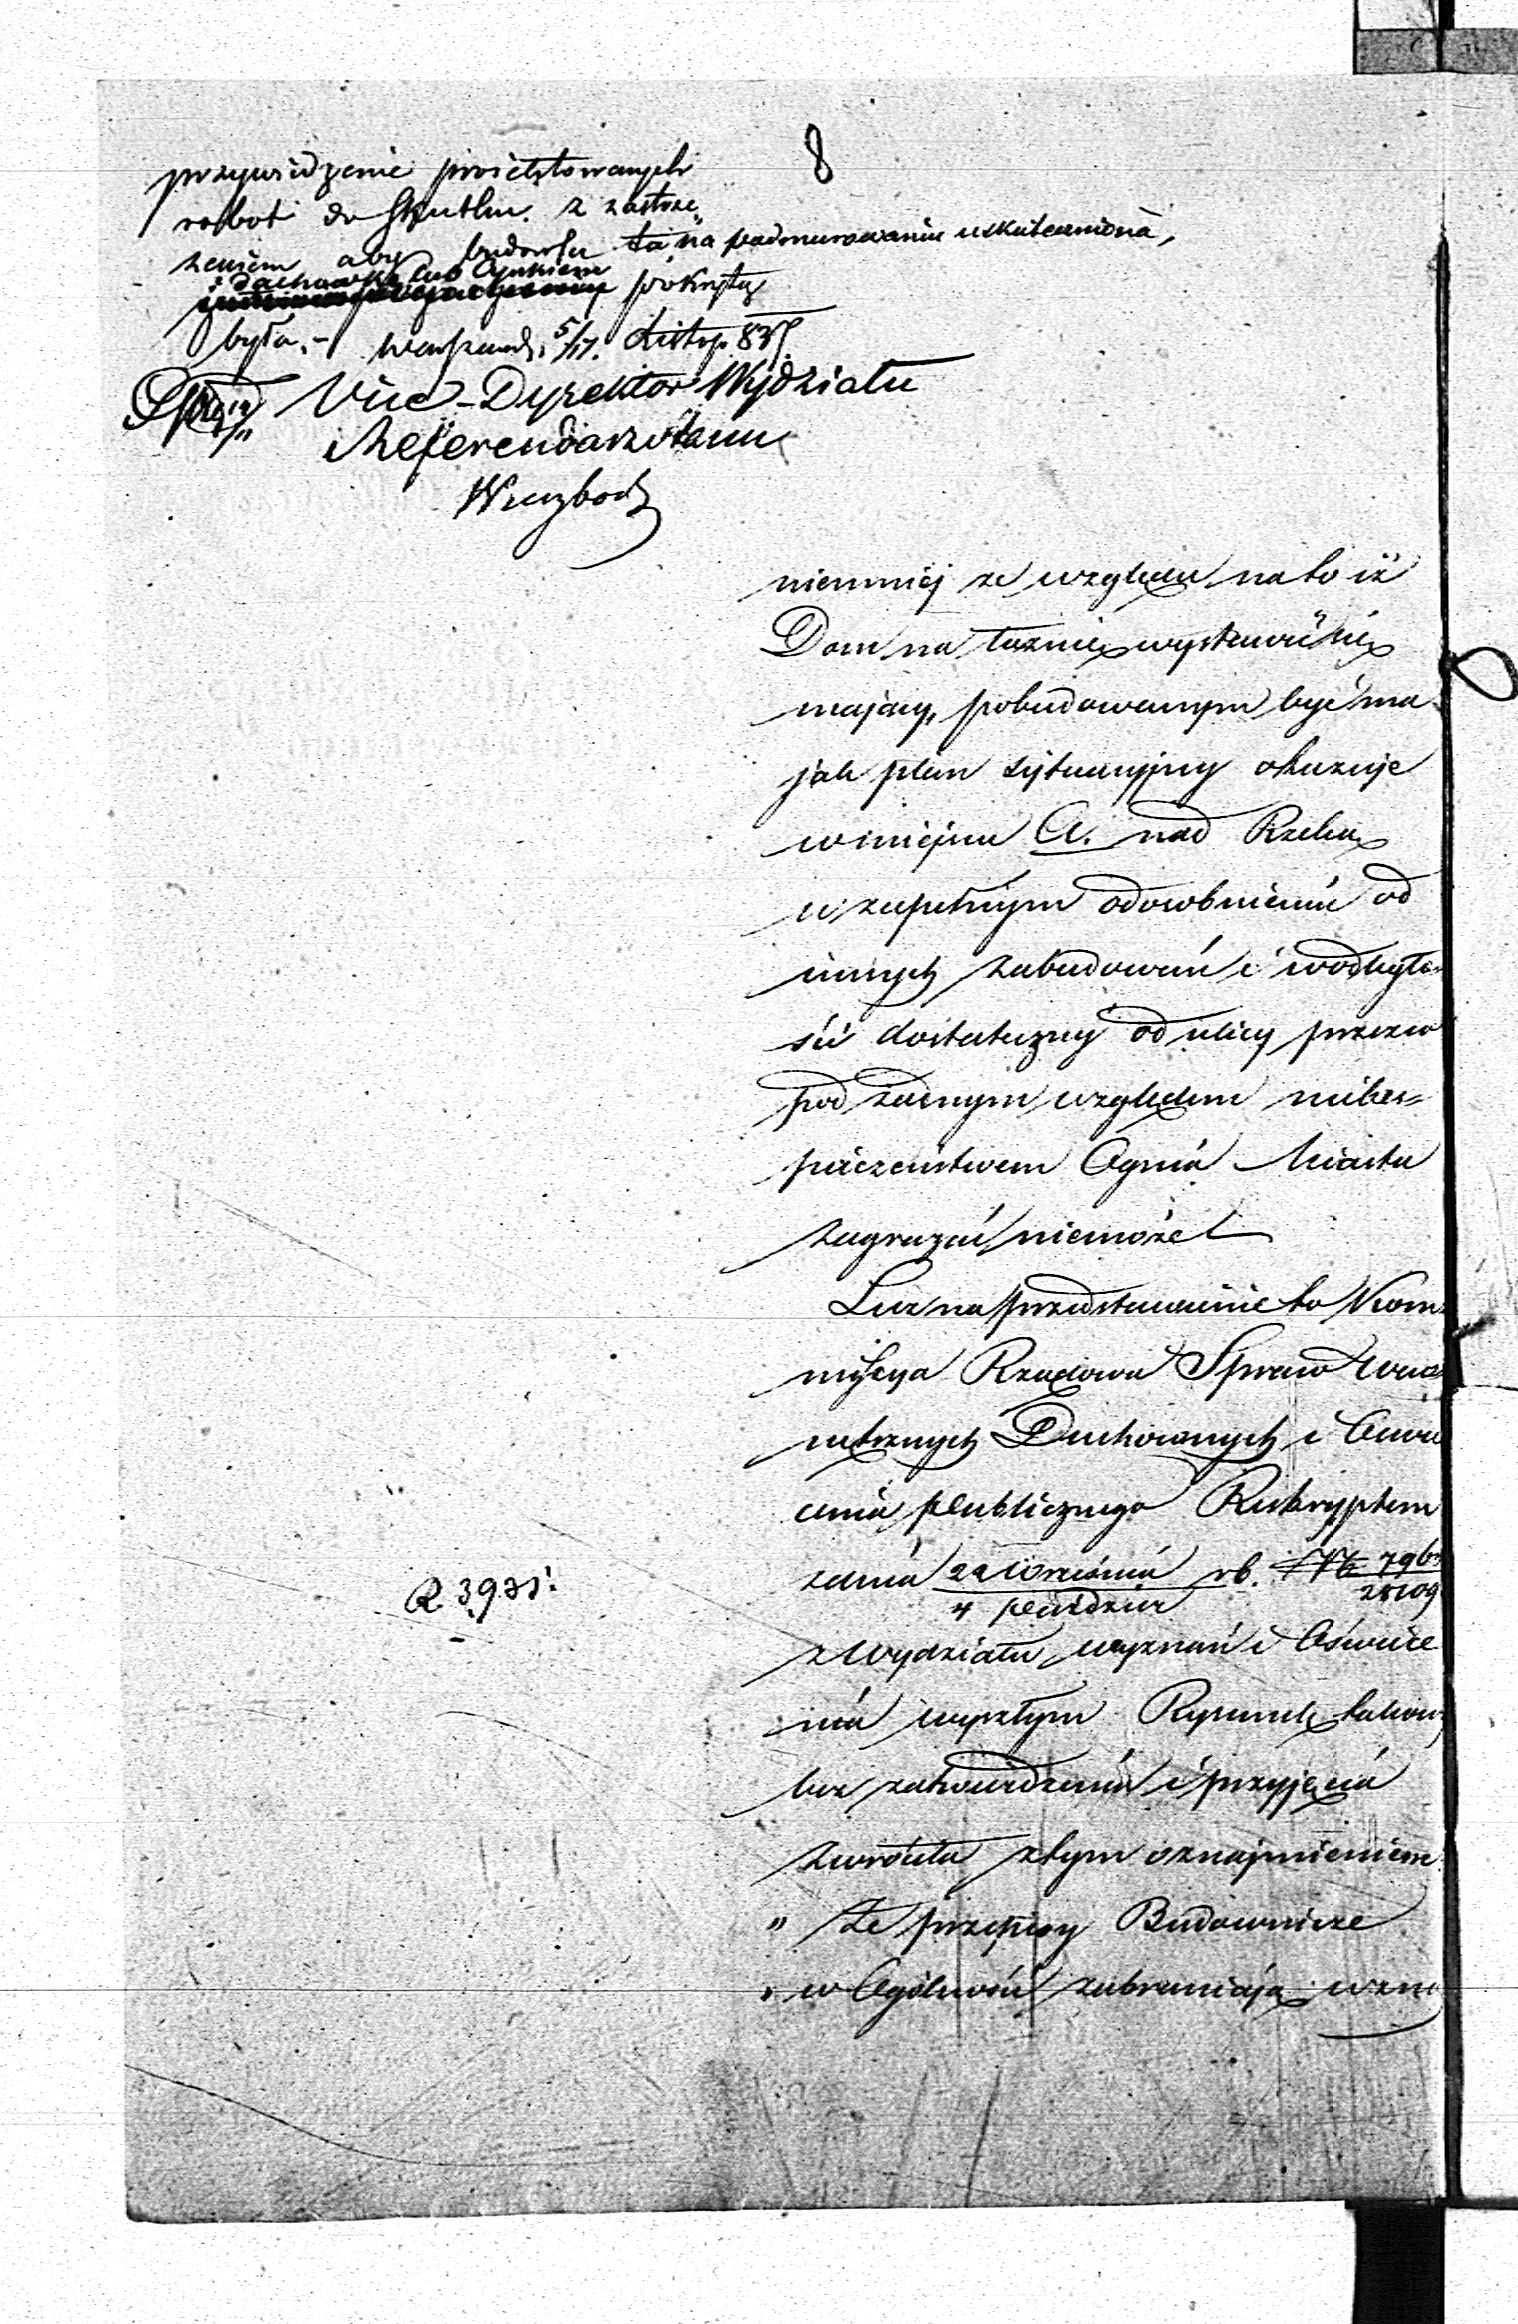 8
przywidzenie proiektowanych
robot do skutku. z zastrze„
żeniem aby budowla ta na podmurowaniu uskuteczniona,
i dachówką lub Cynkiem
pokrytą
była.- Warszawa, 5/17. Listop. 835
Vice-Dyrektor Wydziału
Referendarz Stanu
niemniej ze względu na to iż
Dom na łaźnię wystawić się
mający, pobudowanym być ma
jak plan sytuacyjny okazuje
w miejscu A. nad Rzeką
w zupełnym odosobnieniu od
innych zabudowań i w odległo-
ści dostatecznej od ulicy przezco
pod żadnym względem niebes-
pieczeństwem Ognia Miastu
zagrażać niemoże
Lecz na przedstawienie to Kom-
missya Rządowa Spraw Wew-
nętrznych Duchownych i Oświe
cenia Publicznego Reskryptem
zdnia 22 Września rb. № 796
4 Paździer 28109
R 3935.
z Wydziału wyznań i Oświece
nia wyszłym Rysunek takowy
bez zatwierdzenia i przyjęcia
zwróciła z tym oznajmieniem
" Że przepisy Budownicze
" w Ogólności zabraniają wzno